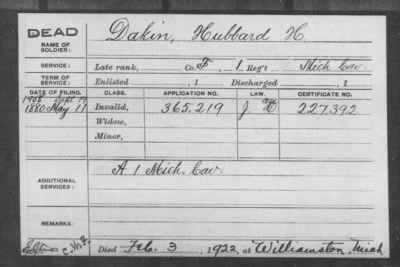 DEAD
NAME OF SOLDIER:
Dakin, Hubbard H
SERVICE:
Late rank, Co. F, 1 Reg't Mich Cav.
TERM OF SERVICE:
Enlisted , 1 Discharged , 1
DATE OF FILING. CLASS. APPLICATION NO. LAW. CERTIFICATE NO.
1908 Sept 19
1880 May 11 Invalid, 365.219 J 227.392
Widow,
Minor,
ADDITIONAL SERVICES:
A 1 Mich. Cav.
REMARKS:
Died Feb. 3, 1922, at Williamston, Mich